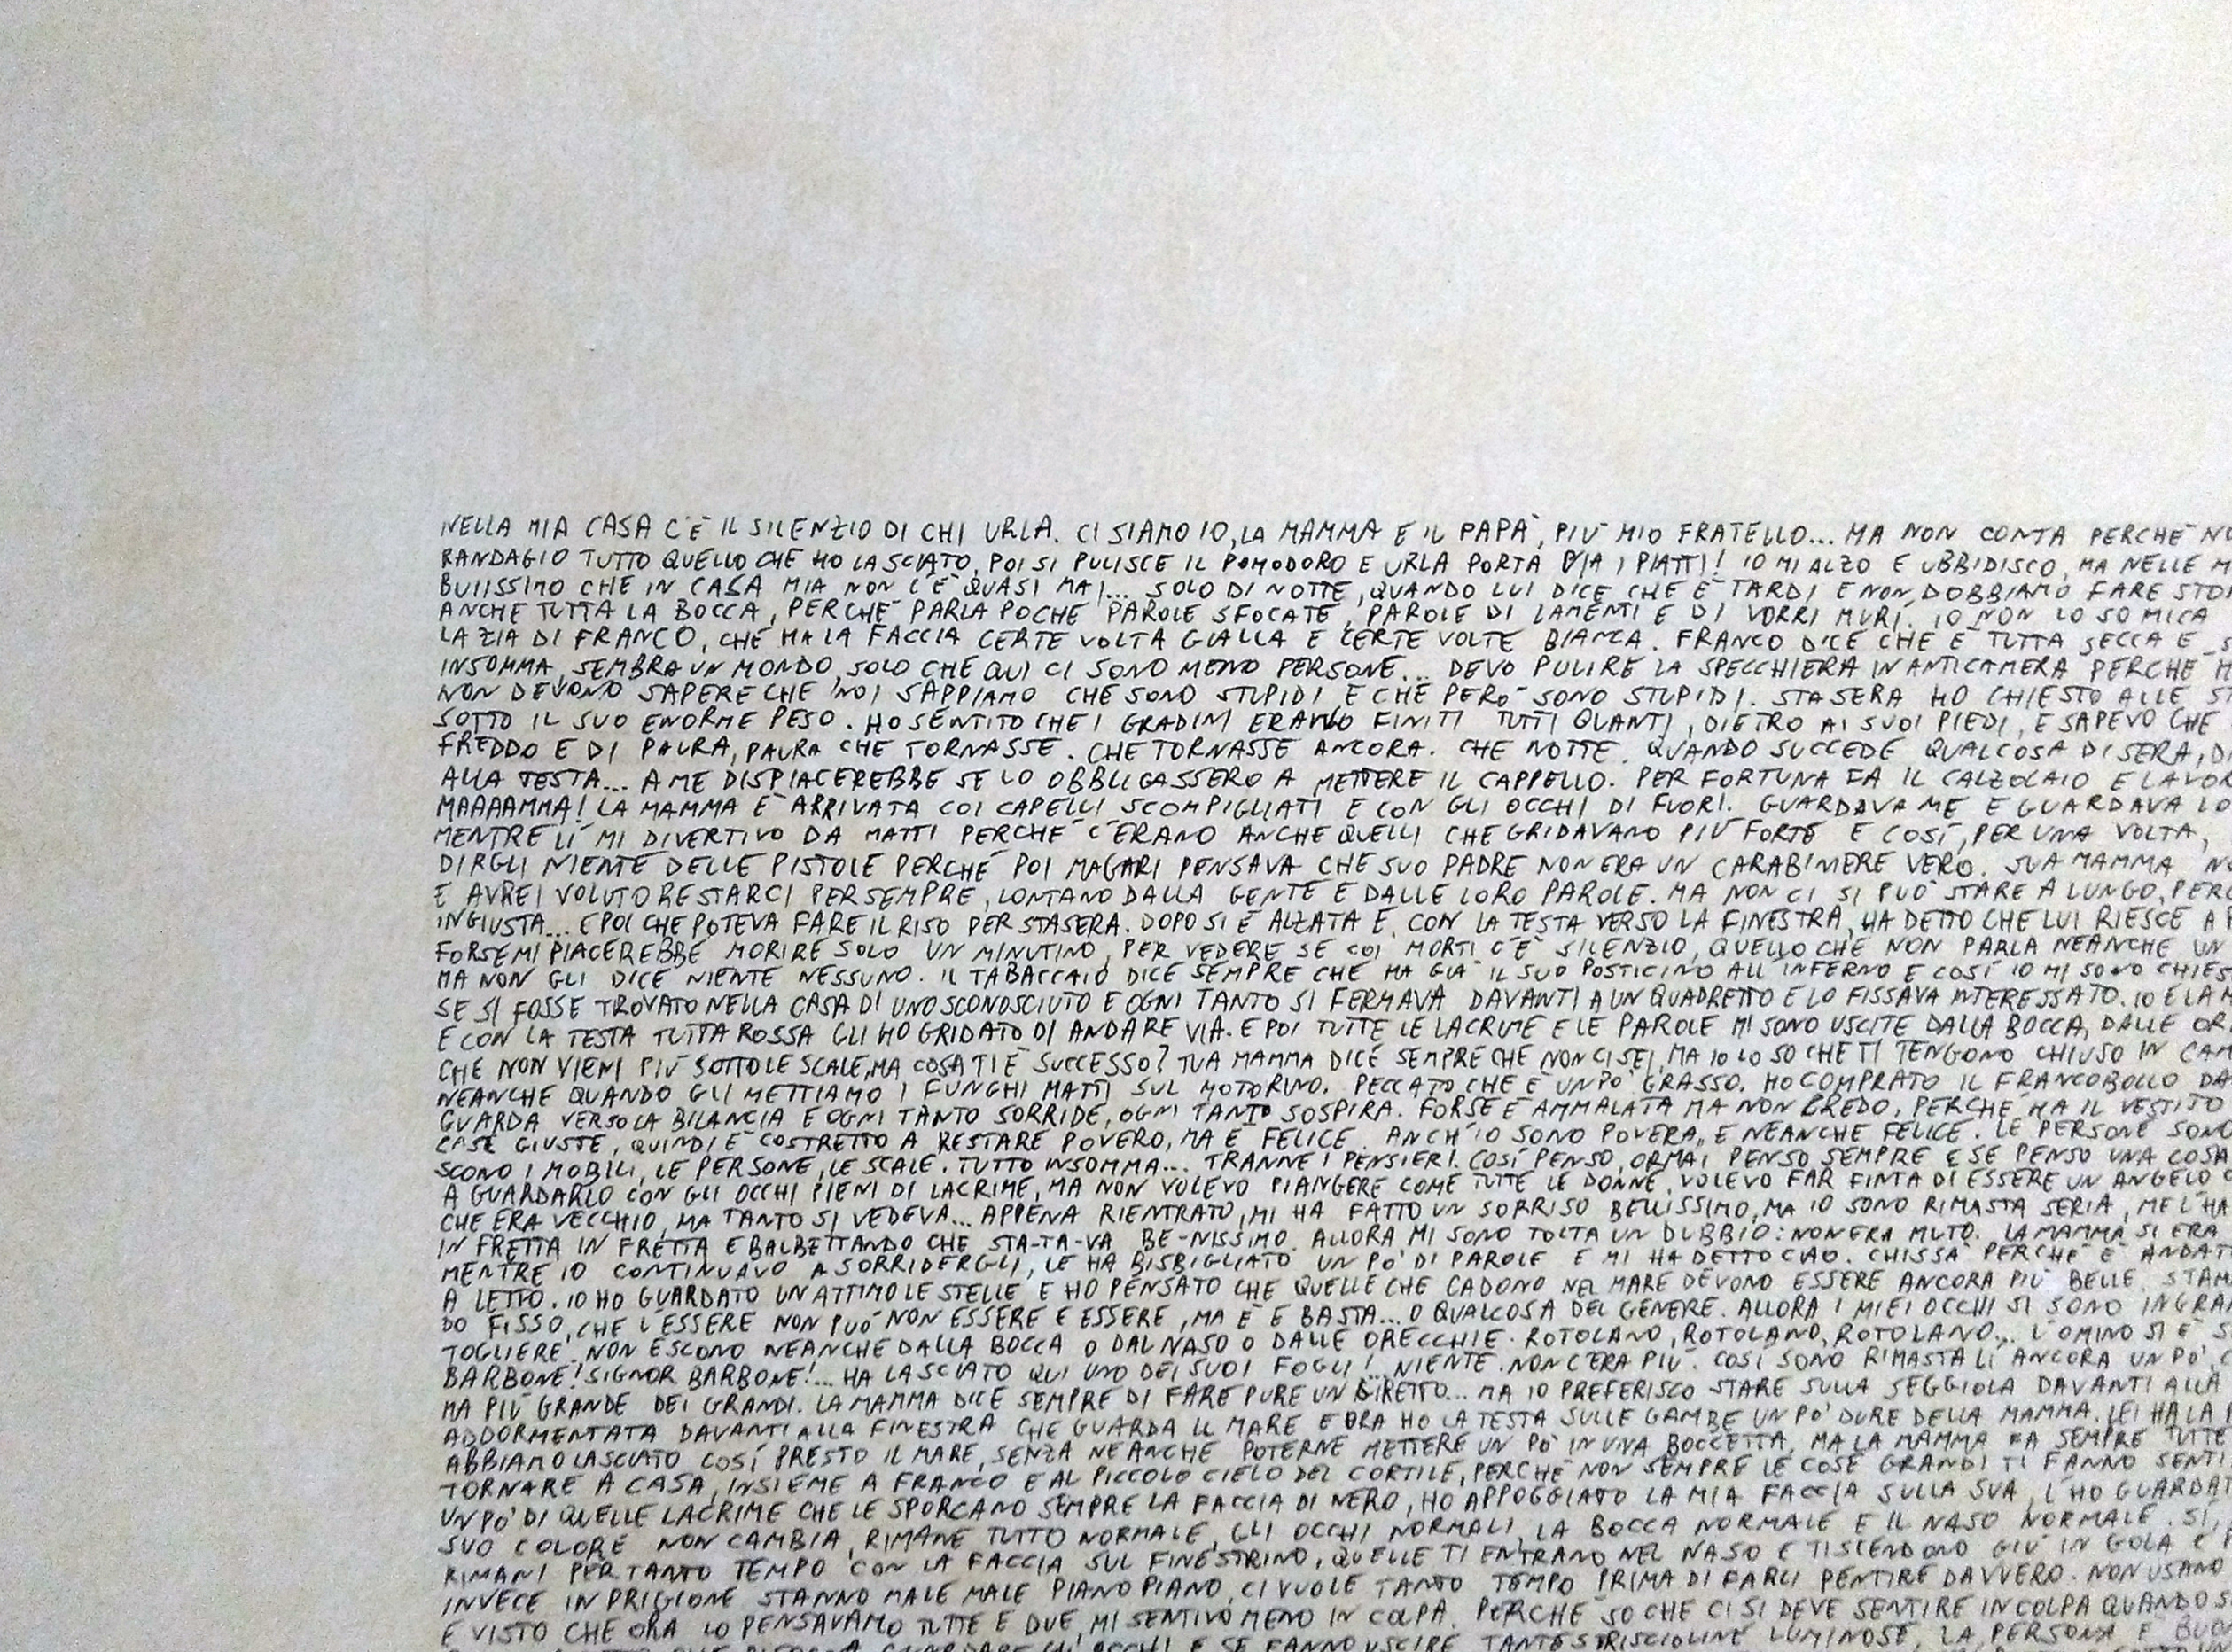 NELLA MIA CASA C'È IL SILENZIO DI CHI URLA. CI SIAMO IO, LA MAMMA E IL PAPÀ, PIÙ MIO FRATELLO... MA NON CONTA PERCHÉ
RANDAGIO TUTTO QUELLO CHE HO LASCIATO, POI SI PULISCE IL POMODORO E URLA PORTA VIA I PIATTI! IO MI ALZO E UBBIDISCO, MA NELLE
BUIISSIMO CHE IN CASA MIA NON C'È QUASI MAI... SOLO DI NOTTE, QUANDO LUI DICE CHE È TARDI E NON DOBBIAMO FARE
ANCHE TUTTA LA BOCCA, PERCHÉ PARLA POCHE PAROLE SFOCATE, PAROLE DI LAMENTI E DI VORRI MURÌ. IO NON LO SO MICA
LA ZIA DI FRANCO, CHE HA LA FACCIA CERTE VOLTA GIALLA E CERTE VOLTE BIANCA. FRANCO DICE CHE È TUTTA SECCA E
INSOMMA, SEMBRA UN MONDO, SOLO CHE QUI CI SONO MENO PERSONE... DEVO PULIRE LA SPECCHIERA IN ANTICAMERA PERCHÉ
NON DEVONO SAPERE CHE NOI SAPPIAMO CHE SONO STUPIDI E CHE PERÒ SONO STUPIDI. STASERA HO CHIESTO ALLE
SOTTO IL SUO ENORME PESO. HO SENTITO CHE I GRADINI ERANO FINITI TUTTI QUANTI, DIETRO AI SUOI PIEDI, E SAPEVO CHE
FREDDO E DI PAURA, PAURA CHE TORNASSE. CHE TORNASSE ANCORA. CHE NOTTE. QUANDO SUCCEDE QUALCOSA DI SERA,
ALLA TESTA... A ME DISPIACEREBBE SE LO OBBLIGASSERO A METTERE IL CAPPELLO. PER FORTUNA FA IL CALZOLAIO E
MAAAAMMA! LA MAMMA È ARRIVATA COI CAPELLI SCOMPIGLIATI E CON GLI OCCHI DI FUORI. GUARDAVA ME E GUARDAVA LO
MENTRE LÌ MI DIVERTIVO DA MATTI PERCHÉ C'ERANO ANCHE QUELLI CHE GRIDAVANO PIÙ FORTE E COSÌ, PER UNA VOLTA,
DIRGLI NIENTE DELLE PISTOLE PERCHÉ POI MAGARI PENSAVA CHE SUO PADRE NON ERA UN CARABINIERE VERO. SUA MAMMA
E AVREI VOLUTO RESTARCI PER SEMPRE, LONTANO DALLA GENTE E DALLE LORO PAROLE. MA NON CI SI PUÒ STARE A LUNGO,
INGIUSTA... E POI CHE POTEVA FARE IL RISO PER STASERA. DOPO SI È ALZATA E, CON LA TESTA VERSO LA FINESTRA, HA DETTO CHE LUI RIESCE A
FORSE MI PIACEREBBE MORIRE SOLO UN MINUTINO, PER VEDERE SE COI MORTI C'È SILENZIO, QUELLO CHE NON PARLA NEANCHE UN
MA NON GLI DICE NIENTE NESSUNO. IL TABACCAIO DICE SEMPRE CHE HA GIÀ IL SUO POSTICINO ALL'INFERNO E COSÌ IO MI SONO
SE SI FOSSE TROVATO NELLA CASA DI UNO SCONOSCIUTO E OGNI TANTO SI FERMAVA DAVANTI A UN QUADRETTO E LO FISSAVA INTERESSATO. IO E LA
E CON LA TESTA TUTTA ROSSA GLI HO GRIDATO DI ANDARE VIA. E POI TUTTE LE LACRIME E LE PAROLE MI SONO USCITE DALLA BOCCA, DALLE
CHE NON VIENI PIÙ SOTTO LE SCALE, MA COSA TI È SUCCESSO? TUA MAMMA DICE SEMPRE CHE NON CI SEI, MA IO LO SO CHE TI TENGONO CHIUSO IN
NEANCHE QUANDO GLI METTIAMO I FUNGHI MATTI SUL MOTORINO. PECCATO CHE È UN PO' GRASSO. HO COMPRATO IL FRANCOBOLLO
GUARDA VERSO LA BILANCIA E OGNI TANTO SORRIDE, OGNI TANTO SOSPIRA. FORSE È AMMALATA MA NON CREDO, PERCHÉ HA IL VESTITO
CASE GIUSTE, QUINDI È COSTRETTO A RESTARE POVERO, MA È FELICE. ANCH'IO SONO POVERA, E NEANCHE FELICE. LE PERSONE SONO
SCONO I MOBILI, LE PERSONE, LE SCALE. TUTTO INSOMMA... TRANNE I PENSIERI. COSÌ PENSO, ORMAI PENSO SEMPRE E SE PENSO UNA COSA
A GUARDARLO CON GLI OCCHI PIENI DI LACRIME, MA NON VOLEVO PIANGERE COME TUTTE LE DONNE. VOLEVO FAR FINTA DI ESSERE UN ANGELO
CHE ERA VECCHIO, MA TANTO SI VEDEVA... APPENA RIENTRATO, MI HA FATTO UN SORRISO BELLISSIMO, MA IO SONO RIMASTA SERIA, ME L'HA
IN FRETTA IN FRETTA E BALBETTANDO CHE STA-TA-VA BE-NISSIMO. ALLORA MI SONO TOLTA UN DUBBIO: NON ERA MUTO. LA MAMMA SI ERA
MENTRE IO CONTINUAVO A SORRIDERGLI, LE HA BISBIGLIATO UN PO' DI PAROLE E MI HA DETTO CIAO. CHISSÀ PERCHÉ È
A LETTO. IO HO GUARDATO UN ATTIMO LE STELLE E HO PENSATO CHE QUELLE CHE CADONO NEL MARE DEVONO ESSERE ANCORA PIÙ BELLE.
DO FISSO, CHE L'ESSERE NON PUÒ NON ESSERE E ESSERE, MA È E BASTA... O QUALCOSA DEL GENERE. ALLORA I MIEI OCCHI SI SONO
TOGLIERE, NON ESCONO NEANCHE DALLA BOCCA O DAL NASO O DALLE ORECCHIE. ROTOLANO, ROTOLANO, ROTOLANO... L'OMINO SI È
BARBONE! SIGNOR BARBONE!... HA LASCIATO QUI UNO DEI SUOI FOGLI! NIENTE. NON C'ERA PIÙ. COSÌ SONO RIMASTA LÌ ANCORA UN PO',
MA PIÙ GRANDE DEI GRANDI. LA MAMMA DICE SEMPRE DI FARE PURE UN DIRETTO... MA IO PREFERISCO STARE SULLA SEGGIOLA DAVANTI ALLA
ADDORMENTATA DAVANTI ALLA FINESTRA CHE GUARDA IL MARE E ORA HO LA TESTA SULLE GAMBE UN PO' DURE DELLA MAMMA. LEI HA LA
ABBIAMO LASCIATO COSÌ PRESTO IL MARE, SENZA NEANCHE POTERNE METTERE UN PO' IN UNA BOCCETTA, MA LA MAMMA FA SEMPRE TUTTE
TORNARE A CASA, INSIEME A FRANCO E AL PICCOLO CIELO DEL CORTILE, PERCHÉ NON SEMPRE LE COSE GRANDI TI FANNO
UN PO' DI QUELLE LACRIME CHE LE SPORCANO SEMPRE LA FACCIA DI NERO, HO APPOGGIATO LA MIA FACCIA SULLA SUA, L'HO
SUO COLORE NON CAMBIA, RIMANE TUTTO NORMALE, GLI OCCHI NORMALI, LA BOCCA NORMALE E IL NASO NORMALE. SÌ,
RIMANI PER TANTO TEMPO CON LA FACCIA SUL FINESTRINO, QUELLE TI ENTRANO NEL NASO E TI SCENDONO GIÙ IN GOLA E
INVECE IN PRIGIONE STANNO MALE MALE PIANO PIANO, CI VUOLE TANTO TEMPO PRIMA DI FARLI PENTIRE DAVVERO. NON USANO
E VISTO CHE ORA LO PENSAVAMO TUTTE E DUE, MI SENTIVO MENO IN COLPA. PERCHÉ SO CHE CI SI DEVE SENTIRE IN COLPA QUANDO
GUARDARE GLI OCCHI E SE FANNO USCIRE TANTE STRISCIOLINE LUMINOSE, LA PERSONA È